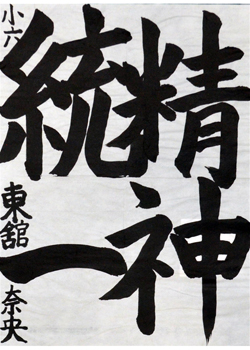 精神
統一
小六 東舘 奈央